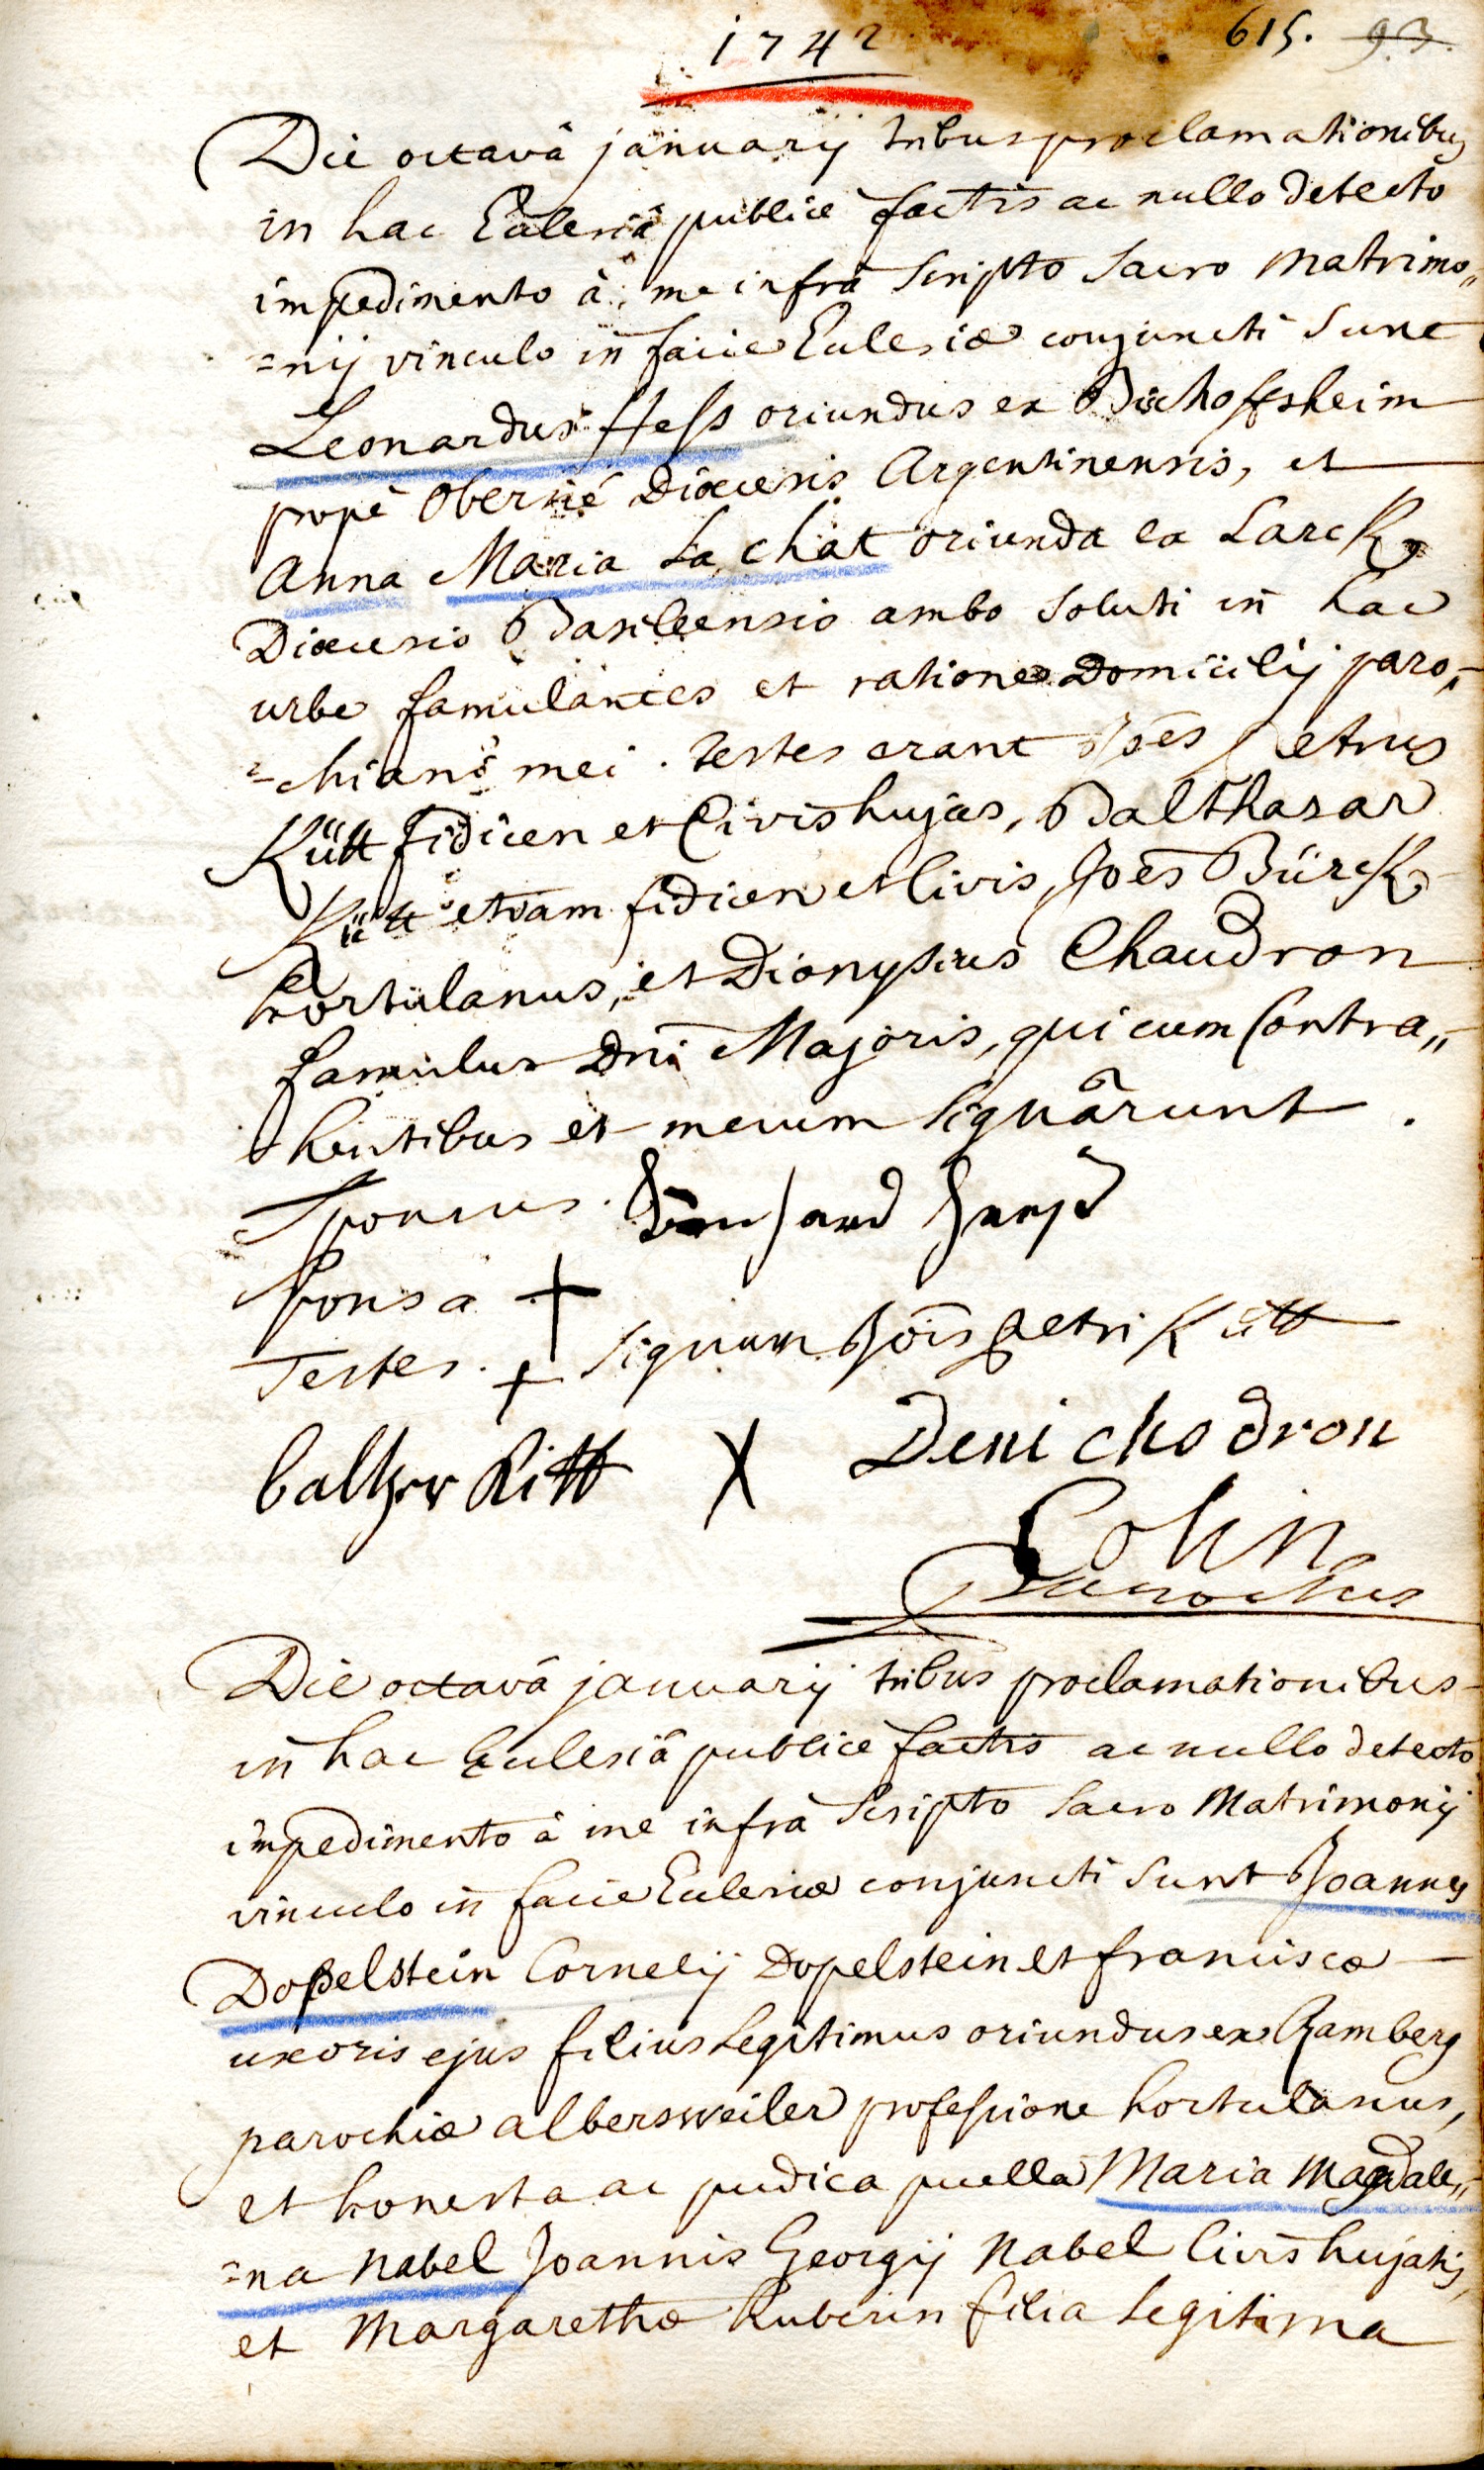 1742
615. 93.
Die octavâ januarij tribus proclamationibus
in hac Ecclesiâ publice factis ac nullo detecto
impedimento à me infrà scripto Sacro matrimo„
=nij vinculo in facie Ecclesiæ conjuncti Sunt
Leonardus Hess oriundus ex Bischoffsheim
propè Oberné Diœcesis Argentinensis, et
Anna Maria La chat oriunda ex Larck
Diœcesis Basileensis ambo Soluti in hac
urbe famulantes et ratione Domicilij paro„
=chiani mei. Testes erant Joes Petrus
Kütt fidicen et Civis hujas, Balthasar
Kütt etiam fidicen et Civis, Joes Bürck
hortulanus, et Dionysius Chaudron
famulus Dni Majoris, qui cum Contra„
hentibus et mecum Signârunt.
Sponsus.
Sponsa +
Testes. + Signum Jois Petri Kütt
baltzer Kitt X Deni chodron
Colin
Parochus
Die octavâ januarij tribus proclamationibus
in hac Ecclesiâ publice factis ac nullo detecto
impedimento à me infrà Scripto Sacro Matrimonij
vinculo in facie Ecclesiæ conjuncti Sunt Joannes
Dopelstein Cornelij Dopelstein et franciscæ
uxoris ejus filius Legitimus oriundus ex Ramberg
parochiæ albersweiler professione hortulanus,
et honesta ac pudica puella Maria Magdale„
=na Nabel Joannis Georgij Nabel Civis hujatis,
et Margarethæ huberin filia Legitima